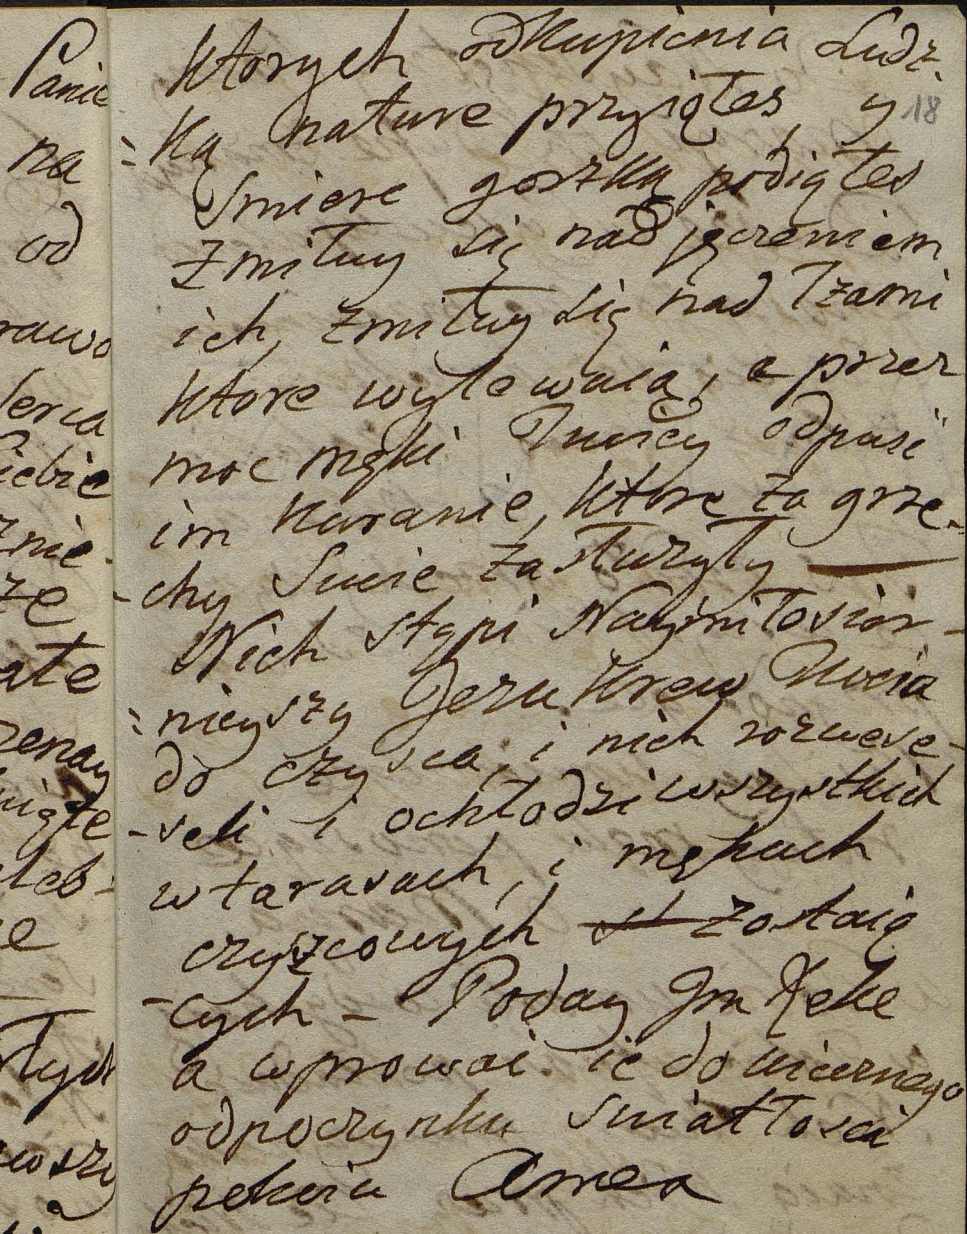 Panie
na
od
rawo
ierca
Ciebie
znie-
ze
ate
zenay
niąte
leb-
e
Ktorych odkupienia Ludz.
18
=ką nature przyiąłes, y
Smierc gorzką podiąłes
zmiłuy się nad jęczeniem
ich, zmiłuy się nad łzami
ktore wylewaią, a przez
moc męki Twoiey odpusć
im karanie, ktore za grze-
-chy Swoie zasłużyły —
Niech stąpi Naymiłosier-
=nieyszy Jezu Krew Twoia
do czysca, i niech rozwese-
-seli i ochłodzi wszystkich
w tarasach, i mękach
czyszcowych zostaią
-cych - Poday Im Reke
a wprować ie do wiecznego
odpoczynku swiatłosci
pokoiu Amen